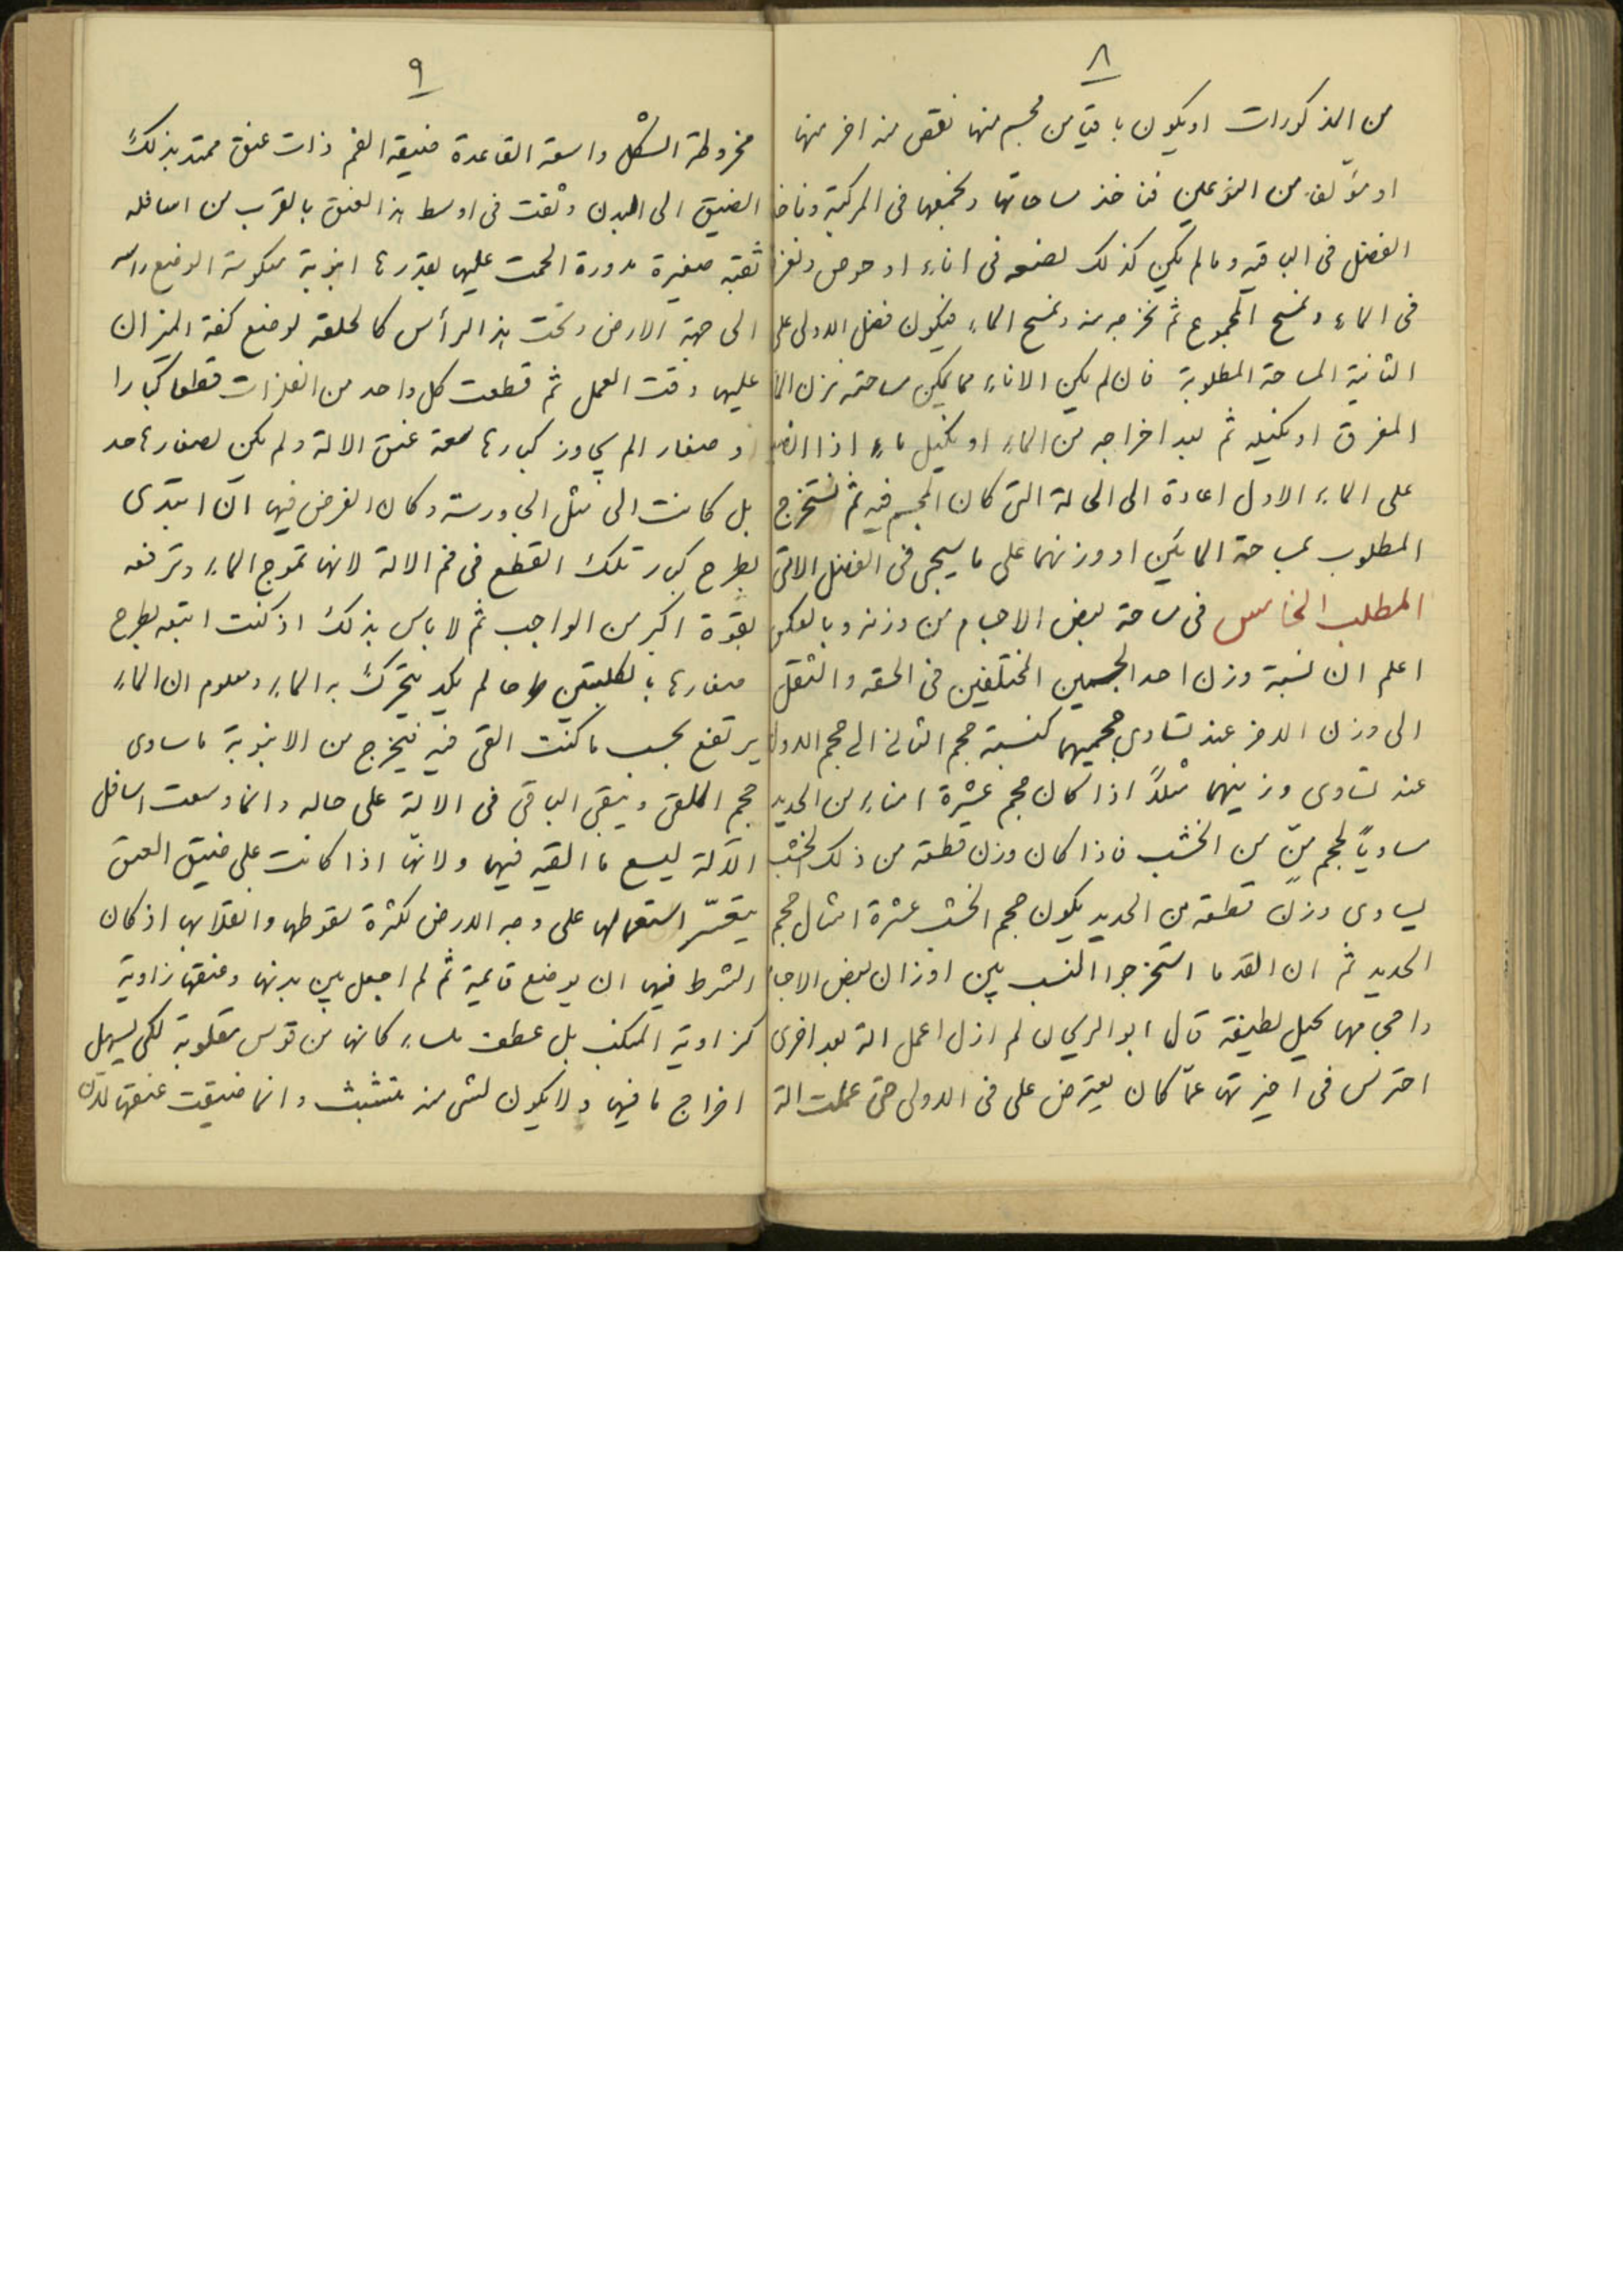 ٨
من المذكورات او يكون باقيا من مجسم منها نقص منه اخر منها
او مؤلف من النوعين فناخذ مساحاتها ونجمعها فى المركبة وناخذ
الفضل فى الباقيه وما لم يكن كذلك نضعه فى اناء او حوض ونغرقه
فى الماء ونمسح المجموع ثم نخرجه منه ونمسح الماء فيكون فضل الاولى على
الثانية المساحة المطلوبة فان لم يكن الاناء مما يمكن مساحته نزن الماء
المغرق او نكيله ثم بعد اخراجه من الماء او نكيل ماء اذا
على الماء الاول اعاده الى الحالة التى كان المجسم فيه ثم نستخرج
المطلوب بمساحة المائين او وزنهما على ما سيجئ فى الفصل الاتى
المطلب الخامس فى مساحة بعض الاجسام من وزنه وبالعكس
اعلم ان نسبة وزن احد الجسمين المختلفين فى الخفة والثقل
الى وزن الاخر عند تساوى حجميهما كنسبة حجم الثانى الى حجم الاول
عند تساوى وزنيهما مثلاً اذا كان حجم عشرة امناء من الحديد
مساوياً لحجم منّ من الخشب فاذا كان وزن قطعة من ذلك الخشب
يساوى وزن قطعة من الحديد يكون حجم الخشب عشرة امثال حجم
الحديد ثم ان القدما استخرجوا النسب بين اوزان بعض الاجسام
واحجامها بحيل لطيفة قال ابو الريحان لم ازل اعمل الة بعد اخرى
احترس فى اخيرتها عمّا كان يعترض على فى الاولى حتى عملت الة
٩
مخروطة الشكل واسعة القاعدة ضيقة الفم ذات عنق ممتد بذلك
الضيق الى البدن وثقبت فى اوسط هذا العنق بالقرب من اسافله
ثقبة صغيرة مدورة الحمت عليها بقدرها انبوبة منكوسة الوضع راسه
الى جهة الارض وتحت هذا الرأس كالحلقة لوضع كفة الميزان
عليها وقت العمل ثم قطعت كل واحد من الفلزات قطعا كبارا
و صغارا لم يجاوز كبارها سعة عنق الالة ولم يكن لصغارها حد
بل كانت الى مثل الجاورسة وكان الغرض فيها ان ابتدى
بطرح كبار تلك القطع فى فم الالة لانها تموج الماء وترفعه
بقوة اكبر من الواجب ثم لا باس بذلك اذ كنت اتبعه بطرح
صغارها بالكلبتين طرحا لم يكد يتحرك به الماء ومعلوم ان الماء
يرتفع بحسب ما كنت القى فيه فيخرج من الانبوبة ما ساوى
حجم الملقى ويبقى الباقى فى الالة على حاله وانما وسعت اسافل
الآلة ليسع ما القيه فيها ولانها اذا كانت على ضيق العنق
يتعسّر استعمالها على وجه الارض لكثرة سقوطها وانقلابها اذ كان
الشرط فيها ان يوضع قائمة ثم لم اجعل بين بدنها وعنقها زاوية
كزاوية المنكب بل عطف ملساء كانها من قوس مقلوبة لكى يسهل
اخراج ما فيها ولا يكون لشى منه متشبث وانما ضيقت عنقها لان